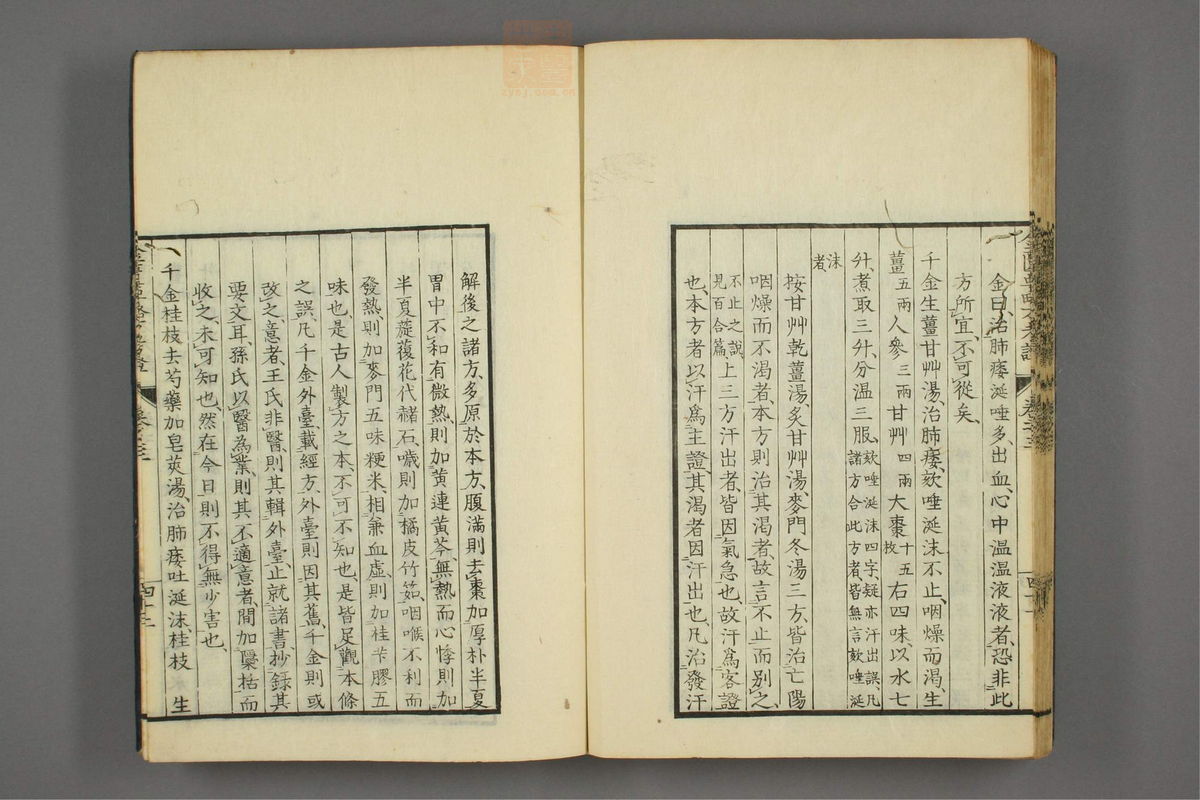 金曰、治肺痿涎唾多、出血、心中温温液液者、恐非此
方所宜、不可從矣、
千金生薑甘艸湯、治肺痿、欬唾涎沫不止、咽燥而渴、生
薑五兩人參三兩甘艸四兩大棗十五枚右四味、以水七
升、煮取三升、分温三服、欬唾涎沫四字、疑亦汗出誤、凡諸方合此方者、皆無言欬唾涎
沫者
按甘艸乾薑湯、炙甘艸湯、麥門冬湯三方、皆治亡陽
咽燥而不渴者、本方則治其渴者、故言不止而別之、
不止之說、見百合篇、上三方汗出者、皆因氣急也、故汗爲客證
也、本方者以汗爲主證、其渴者因汗出也、凡治發汗
解後之諸方、多原於本方、腹滿則去棗加厚朴半夏
胃中不和有微熱、則加黄連黄芩、無熱而心悸則加
半夏蓯蓉花代赭石、噦則加橘皮竹筎、咽喉不利而
發熱、則加麥門五味粳米、相兼血虛、則加桂芐膠五
味也、是古人製方之本、不可不知也、是皆足觀本條
之誤、凡千金外臺、載經方、外臺則因其舊、千金則或
改之、意者、王氏非醫、則其輯外臺、止就諸書抄錄其
要文耳、孫氏以醫為業、則其不適意者、間加檃栝而
收之、未可知也、然在今日則不得無少害也、
千金桂枝去芍藥加皂莢湯、治肺痿吐涎沫、桂枝 生